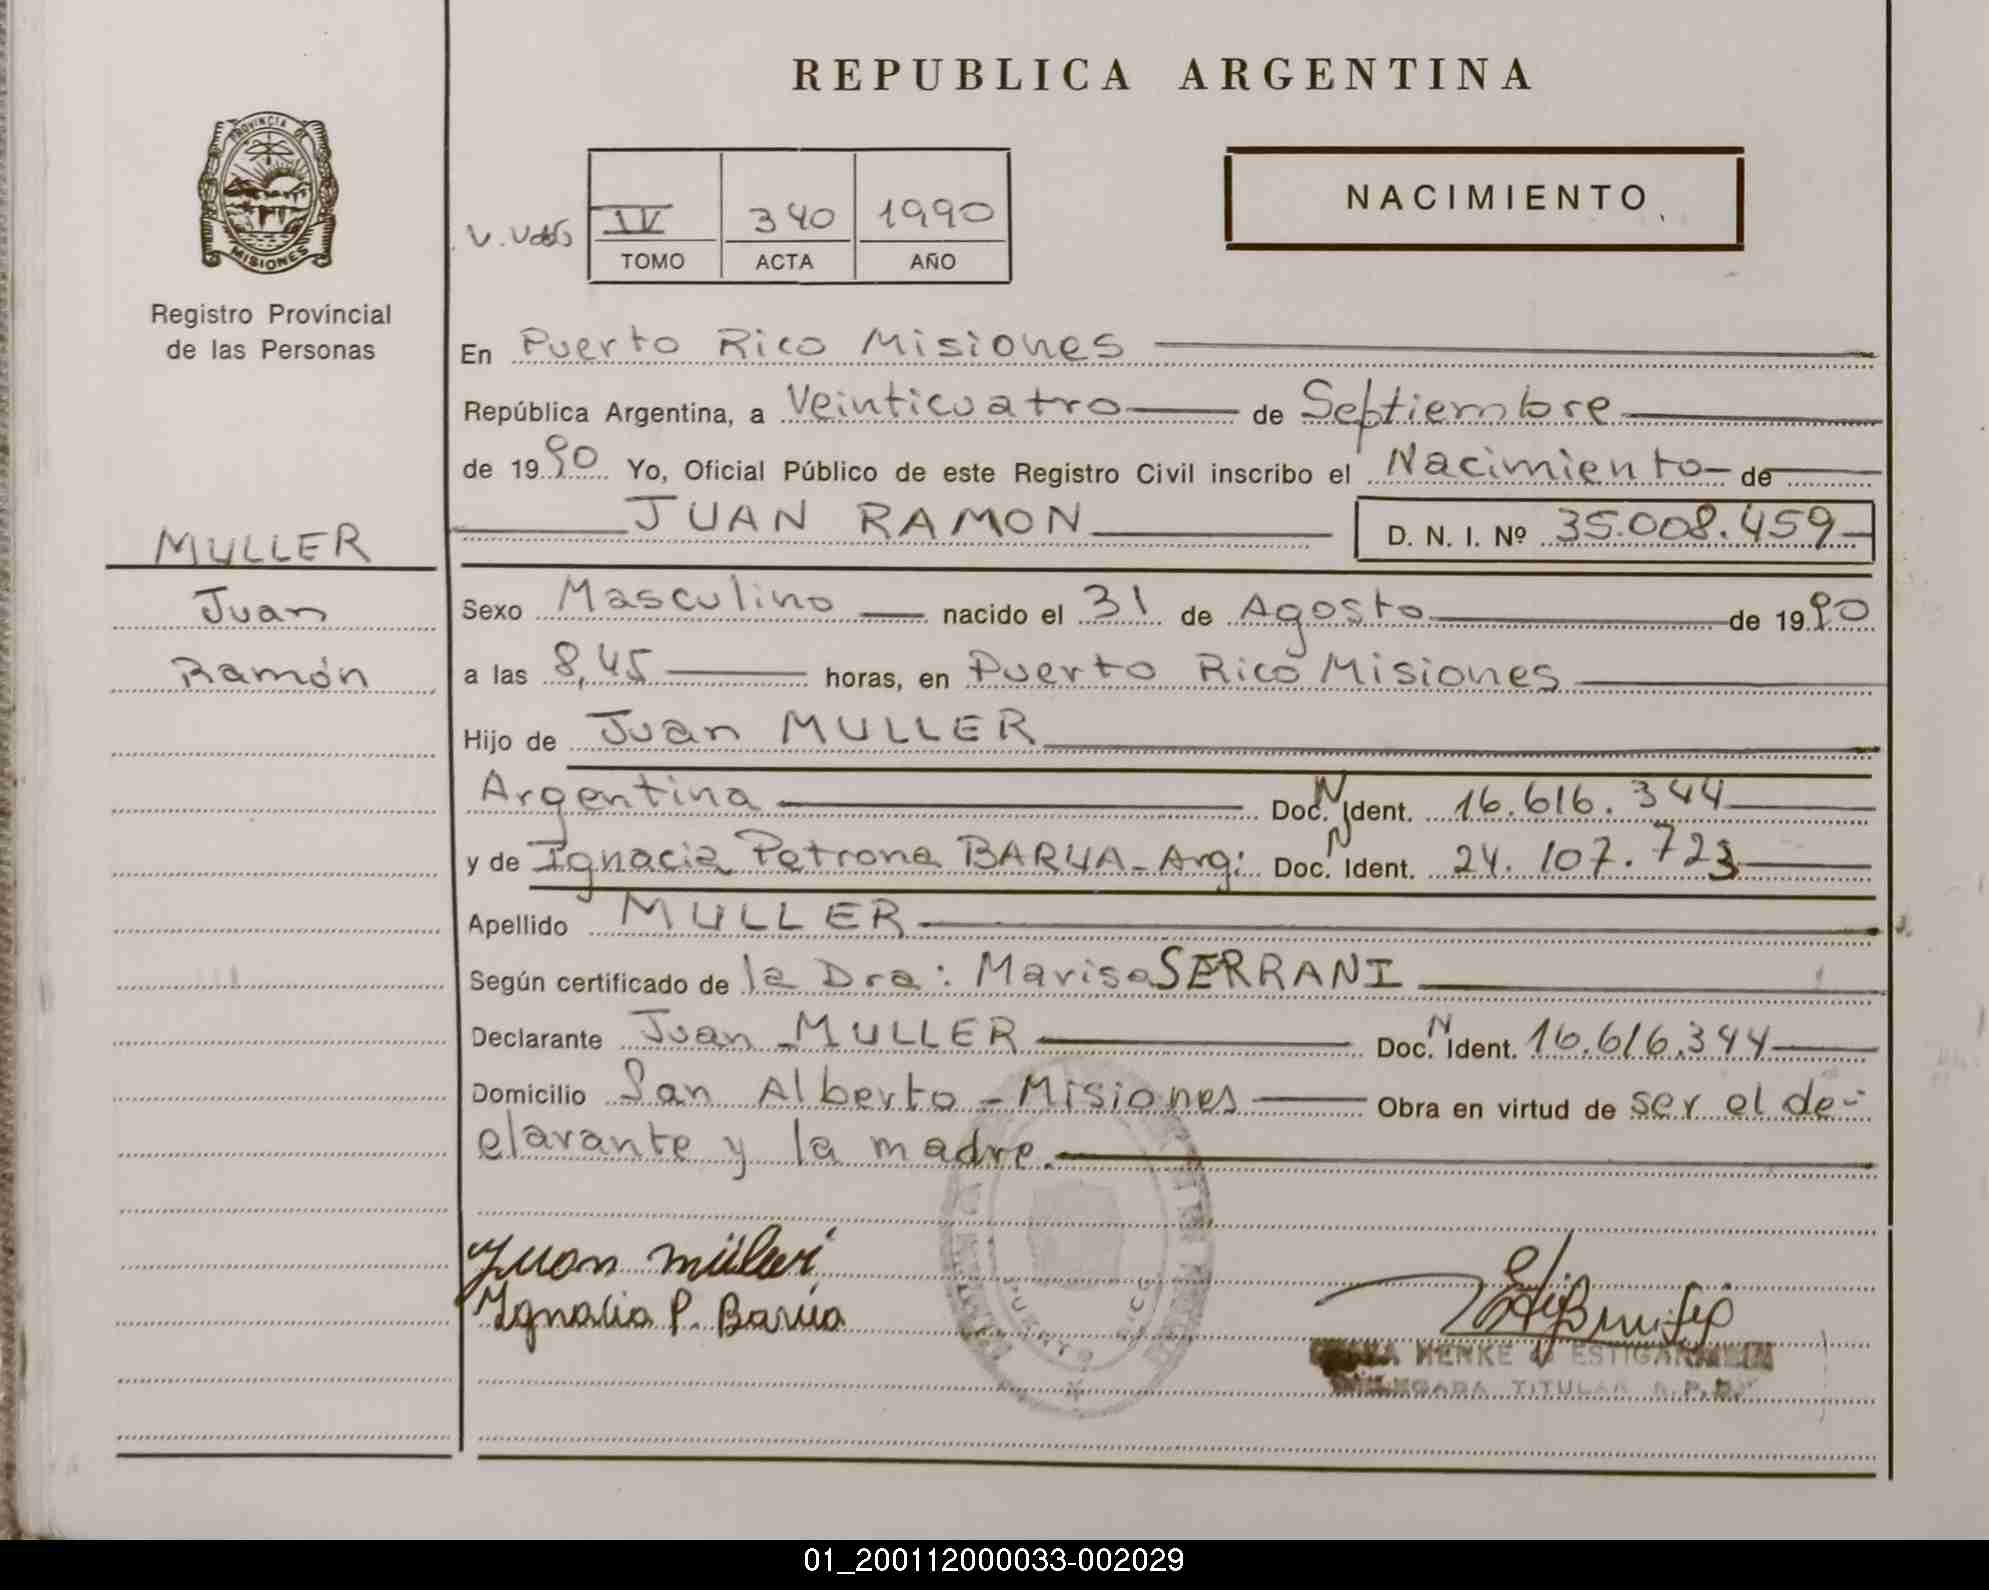 REPUBLICA ARGENTINA
PROVINCIA DE
MISIONES
Registro Provincial
de las Personas
NACIMIENTO
IV 340 1990
TOMO ACTA AÑO
En Puerto Rico Misiones
República Argentina, a Veinticuatro de Septiembre
de 1990 Yo, Oficial Público de este Registro Civil inscribo el Nacimiento de
JUAN RAMON D. N. I. Nº 35.008.459
MULLER
Juan
Ramón
Sexo Masculino nacido el 31 de Agosto de 1990
a las 8,45 horas, en Puerto Rico Misiones
Hijo de Juan MULLER
Argentina Doc. N Ident. 16.616.344
y de Ignacia Petrona BARUA - Arg: Doc. N Ident. 24.107.723
Apellido MULLER
Según certificado de la Dra: Marisa SERRANI
Declarante Juan MULLER Doc. N Ident. 16.616.344
Domicilio San Alberto - Misiones Obra en virtud de ser el de-
clarante y la madre.
Juan Müller
Ignacia P. Barúa
PUERTO RICO
HENKE
TITULAR R.P.P.
01_200112000033-002029